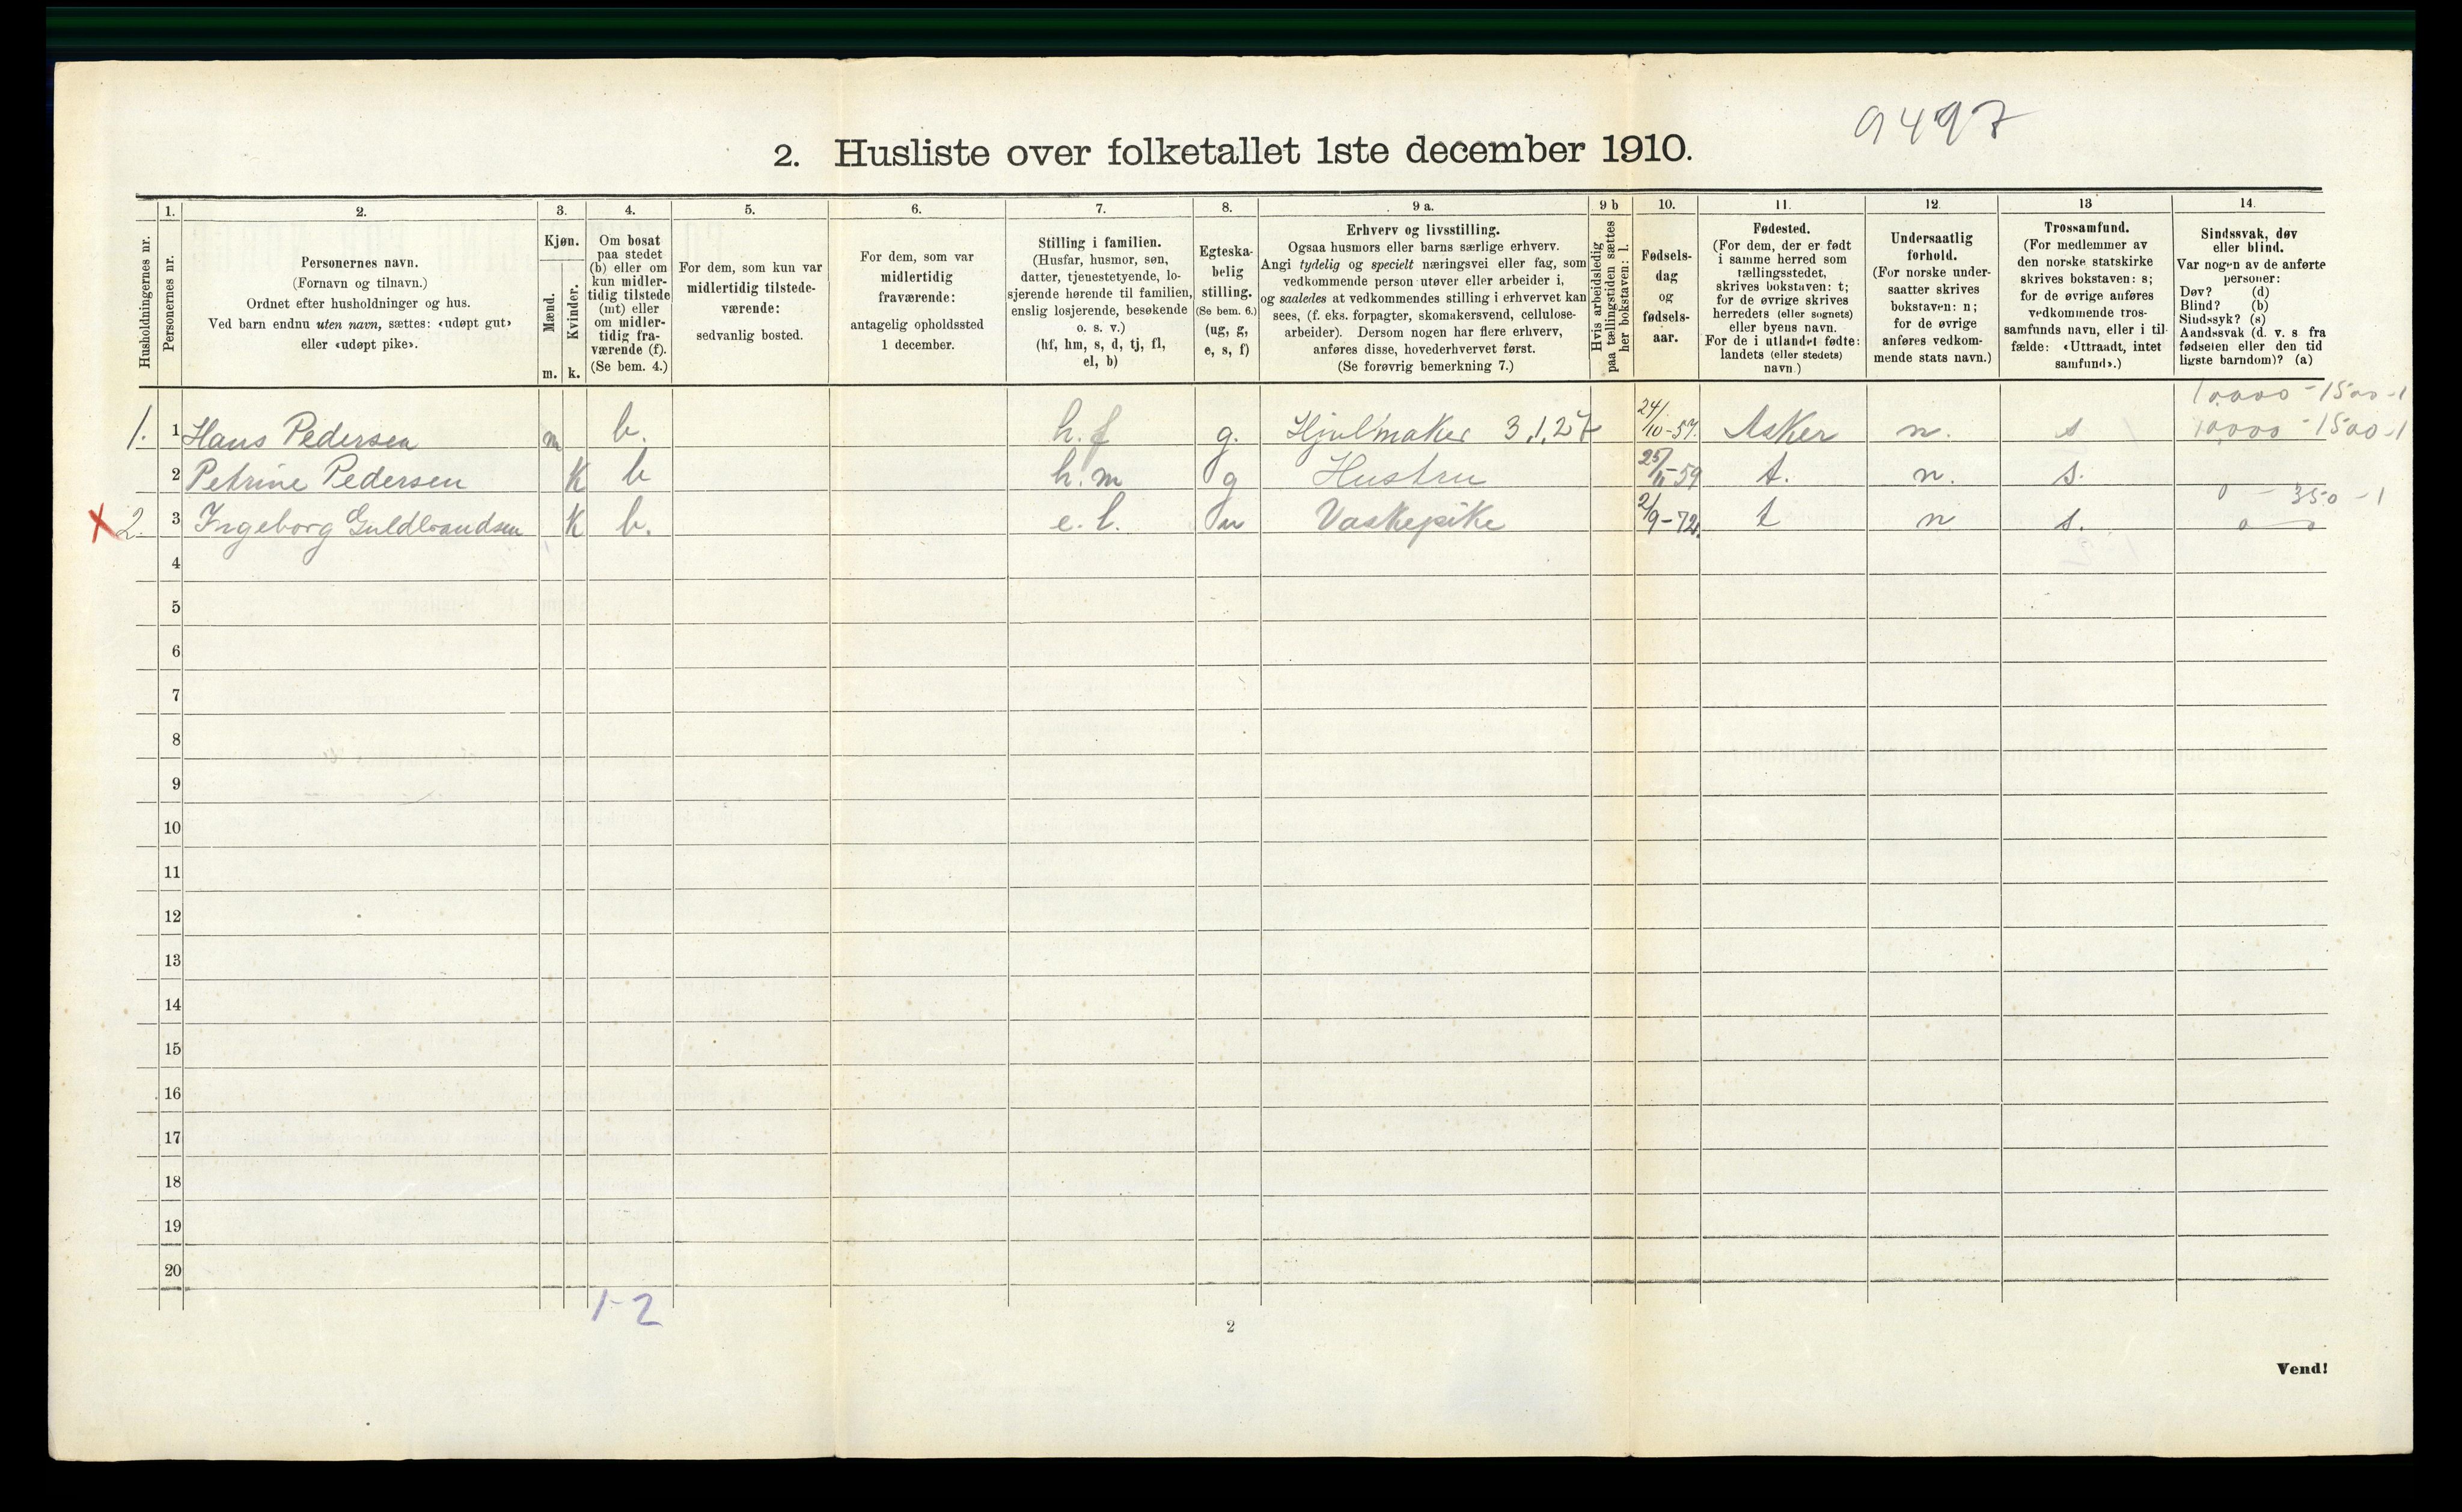 9497
2. Husliste over folketallet 1ste december 1910.
Husholdningernes nr.
1.
Personernes nr.
2.
Personernes navn.
(Fornavn og tilnavn.)
Ordnet efter husholdninger og hus.
Ved barn endnu uten navn, sættes: «udøpt gut»
eller «udøpt pike».
3.
Kjøn.
Mænd.
Kvinder.
m. k.
4.
Om bosat
paa stedet
(b) eller om
kun midler-
tidig tilstede
(mt) eller
om midler-
tidig fra-
værende (f).
(Se bem. 4.)
5.
For dem, som kun var
midlertidig tilstede-
værende:
sedvanlig bosted.
6.
For dem, som var
midlertidig
fraværende:
antagelig opholdssted
1 december.
7.
Stilling i familien.
(Husfar, husmor, søn,
datter, tjenestetyende, lo-
sjerende hørende til familien,
enslig losjerende, besøkende
o. s. v.)
(hf, hm, s, d, tj, fl,
el, b)
8.
Egteska-
belig
stilling.
(Se bem. 6.)
(ug, g,
e, s, f)
9 a.
Erhverv og livsstilling.
Ogsaa husmors eller barns særlige erhverv.
Angi tydelig og specielt næringsvei eller fag, som
vedkommende person utøver eller arbeider i,
og saaledes at vedkommendes stilling i erhvervet kan
sees, (f. eks. forpagter, skomakersvend, cellulose-
arbeider). Dersom nogen har flere erhverv,
anføres disse, hovederhvervet først.
(Se forøvrig bemerkning 7.)
9 b
Hvis arbeidsledig
paa tællingstiden sættes
her bokstaven: l.
10.
Fødsels-
dag
og
fødsels-
aar.
11.
Fødested.
(For dem, der er født
i samme herred som
tællingsstedet,
skrives bokstaven: t;
for de øvrige skrives
herredets (eller sognets)
eller byens navn.
For de i utlandet fødte:
landets (eller stedets)
navn.)
12.
Undersaatlig
forhold.
(For norske under-
saatter skrives
bokstaven: n;
for de øvrige
anføres vedkom-
mende stats navn.)
13
Trossamfund.
(For medlemmer av
den norske statskirke
skrives bokstaven: s;
for de øvrige anføres
vedkommende tros-
samfunds navn, eller i til-
fælde: «Uttraadt, intet
samfund».)
14.
Sindssvak, døv
eller blind.
Var nogen av de anførte
personer:
Døv? (d)
Blind? (b)
Sindssyk? (s)
Aandssvak (d. v. s fra
fødselen eller den tid
ligste barndom)? (a)
10,000 - 1500 - 1
1. 1 Hans Pedersen m b. h.f g. Hjulmaker 3,1,27 24/10-57. Asker n. s 10,000 - 1500 - 1
2 Petrine Pedersen K b h.m g Hustru t. n. s.
0 - 350 - 1
X 2. 3 Ingeborg Guldbrandsen K b. e.l. u Vaskepike 2/9-72. t n s. 0 0
4
5
6
7
8
9
10
11
12
13
14
15
16
17
18
19
20
1-2
2
Vend!